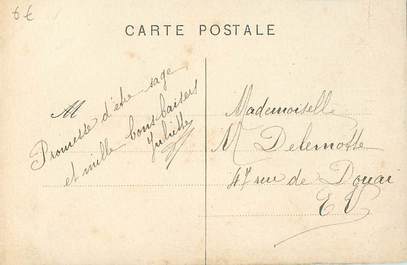 6€
CARTE POSTALE
M
Promesse d'être sage
et mille bons baisers
Juliette
Mademoiselle
M Delemotte
47 rue de Douai
E V